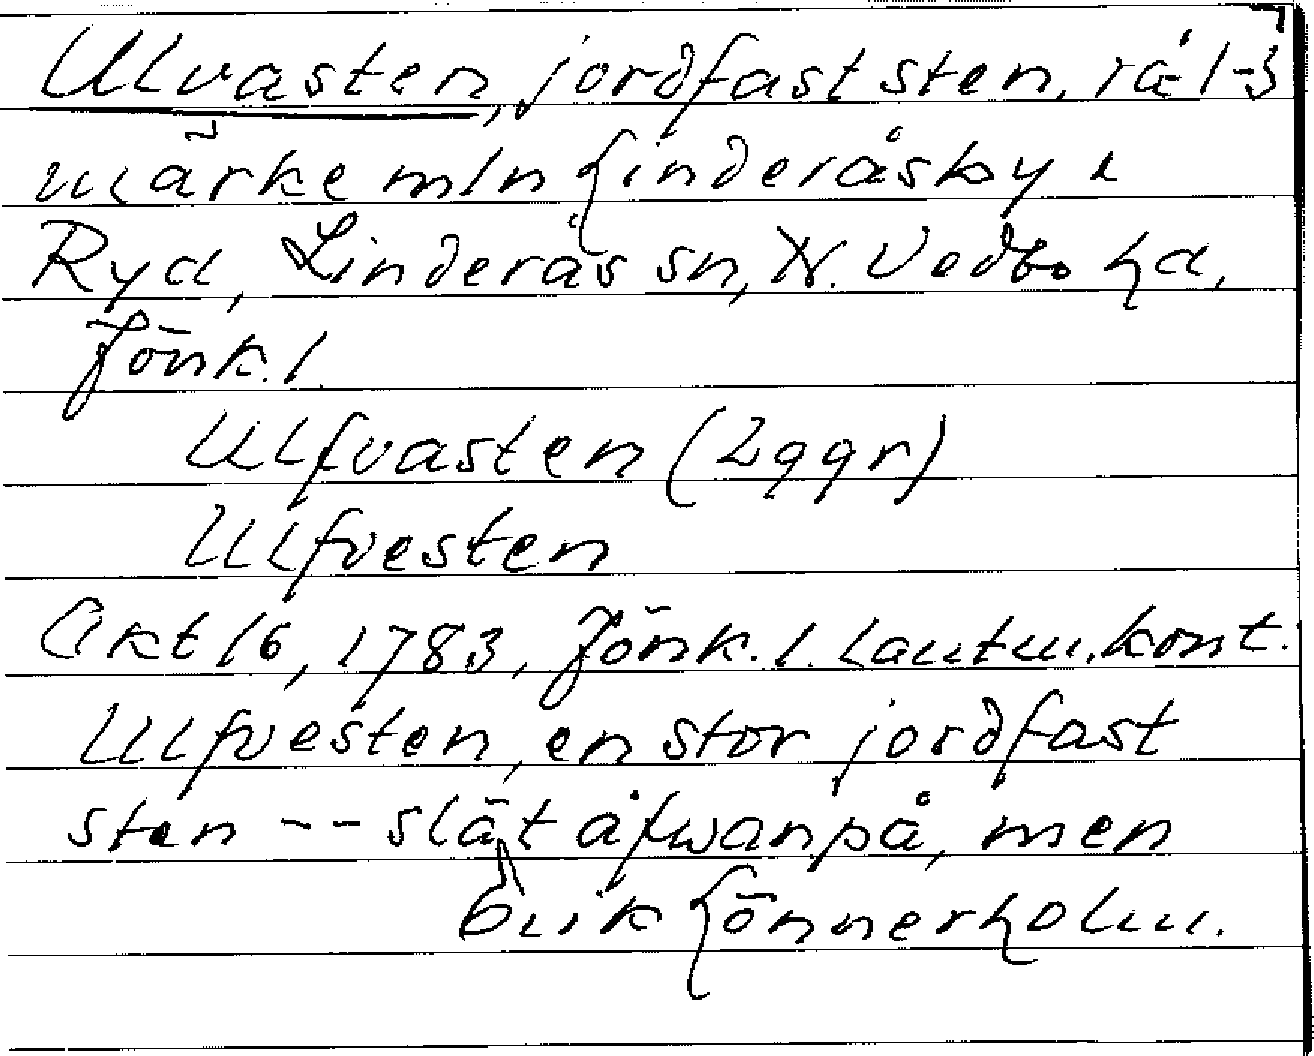 Ulvasten, jordfast sten, rå- 1-3
märke mln Linderåsby i
Ryd, Linderås sn, N. Vedbo hd,
Jönk. l.
Ulfvasten (2 ggr)
Ulfvesten
Akt 16, 1783, Jönk. l. Lantm. kont.
Ulfvesten, en stor jordfast
sten -- slät åfwanpå, men
Erik Lönnerholm.